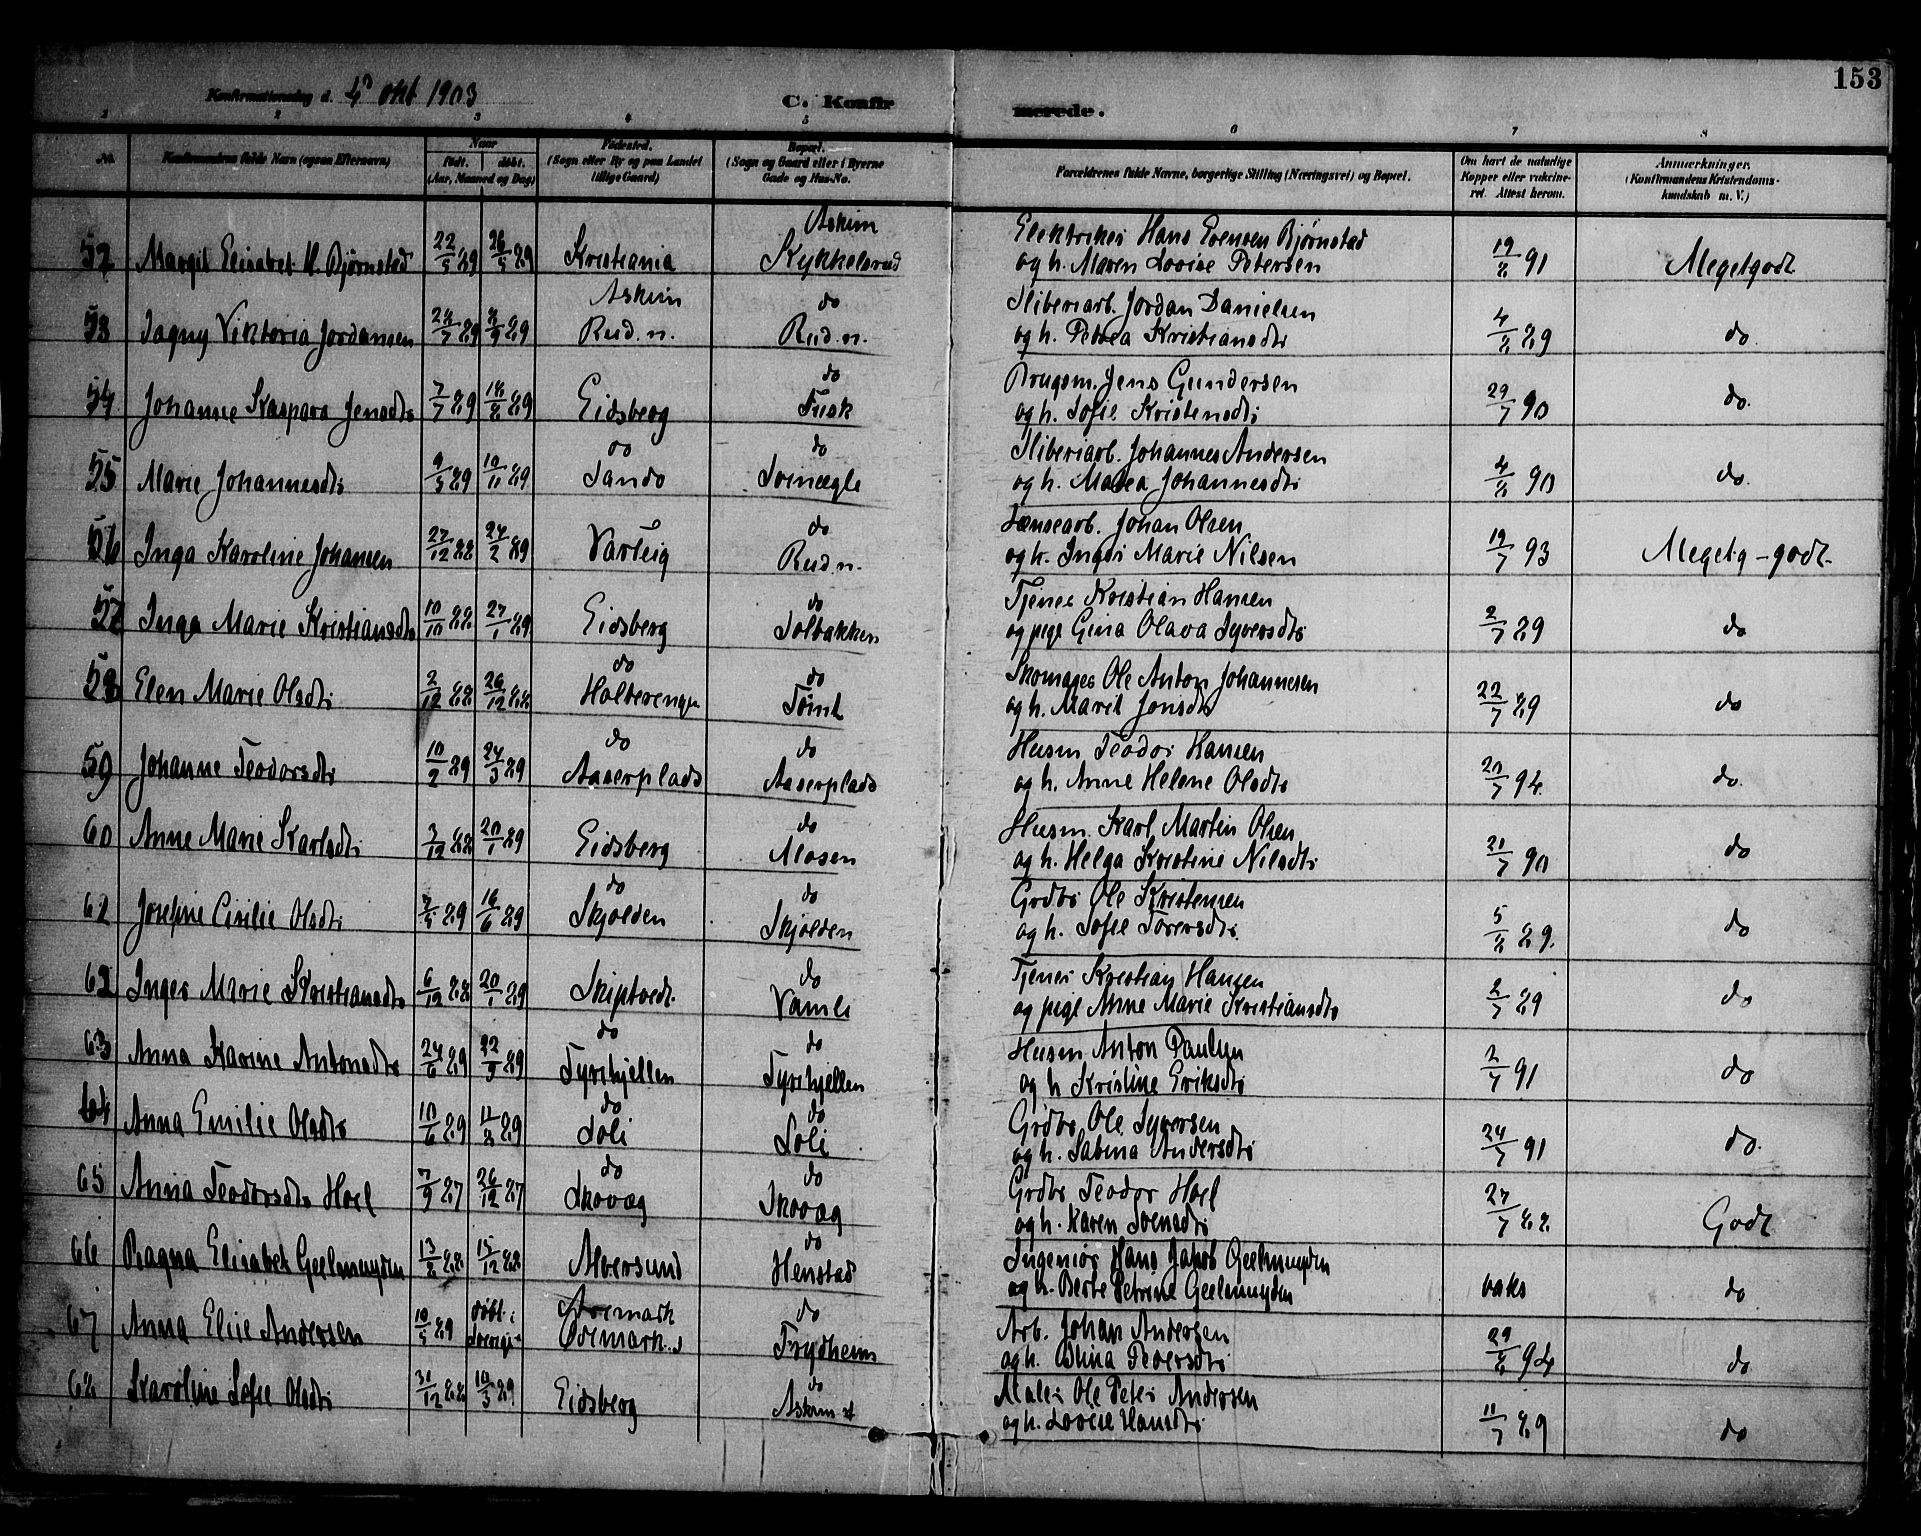 153
Konfirmationsdag d. 4de okt 1903
C. Konfirmerede.
1 2 3 4 5 6 7 8
No. Konfirmandens fulde Navn (ogsaa Efternavn) Naar født. døbt. (Aar, Maaned og Dag) Fødested. (Sogn eller By og paa Landet tillige Gaard) Bopæl. (Sogn og Gaard eller i Byerne Gade og Hus-No. Forældrenes fulde Navne, borgerlige Stilling (Næringsvei) og Bopæl. Om havt de naturlige Kopper eller vakcineret. Attest herom. Anmærkninger. (Konfirmandens Kristendomskundskab m. V.)
52 Margit Elisabet H. Bjørnstad 22/5 89 26/5 89 Kristiania Askim Kykkelsrud Elektriker Hans Evensen Bjørnstad
og h. Maren Lovise Petersen 19/8 91 Megetgodt
53 Dagny Viktoria Jordansen 7 89 9 89 Askim Rud. n. do Rud. n. Sliberiarb. Jordan Danielsen
og h. Petrea Kristiansdtr 4/8 89 do
54 Johanne Kaspara Jensdtr 7/7 89 18/8 89 Eidsberg do Tusk Brugsm. Jens Gundersen
og h. Sofie Kristensdtr 29/7 90 do.
55 Marie Johannesdtr 9 89 10/11 89 do Sando do Svinægle Sliberiarb. Johannes Andersen
og h. Matea Johannesdtr 4/8 90 do.
56 Inga Karoline Johansen 27/12 88 24/2 89 Varteig do Rud. n. Lænsearb. Johan Olsen
og h. Inger Marie Nilsen 19/7 93 Megetg-godt.
57 Inga Marie Kristiansdtr 10/10 88 27/1 89 Eidsberg do Solbakken Tjener Kristian Hansen
og pige Gina Olava Syversdtr 2/7 89 do
58 Elen Marie Olsdtr 2/12 88 26/12 88 do Holterengen do Tømt Skomager Ole Anton Johannesen
og h. Marit Jonsdtr 22/7 89 do
59 Johanne Teodorsdtr 10/2 89 24/3 89 do Aaserplads do Aaserplads Husm Teodor Hansen
og h. Anne Helene Olsdtr 20/7 94 do.
60 Anne Marie Karlsdtr 3/12 88 20/1 89 Eidsberg do Mosen Husm. Karl Martin Olsen
og h. Helga Kristine Nilsdtr 21/7 90 do
61 Josefine Cicilie Olsdtr 5 89 16/6 89 do Skjolden do Skjolden Grdbr Ole Kristensen
og h. Sofie Torersdtr. 5/8 89. do
62 Inger Marie Kristiansdtr 6/12 88 20/1 89 Skiptvedt do Vamli Tjener Kristian Hansen
og pige Anne Marie Kristiansdtr 7 89 do
63 Anna Karine Antonsdtr 24/6 89 22 89 do Tyrihjellen do Tyrihjellen Husm Anton Paulsen
og h Kristine Eriksdtr 2/7 91 do
64 Anna Emilie Olsdtr 10/6 89 11/8 89 do Loli do Loli Grdbr Ole Syversen
og h. Sabina Andersdtr 24/7 91 do.
65 Anna Teodorsdtr Hoel 7/9 87 26/12 87 do Skovag do Skovag Grdbr Teodor Hoel
og h. Karen Svensdtr 27/7 88. Godt
66 Ragna Elisabet Geelmuyden 13/8 88 15/12 88 Alversund do Henstad Ingeniør Hans Jakob Geelmuyden
og h. Berte Petrine Geelmuyden vaks do
67 Anna Elise Andersen 10/5 89 døbt i Sverige Ødemark do Frydheim Arb. Johan Andersen
og h. Olina Pedersdtr 29/8 94 do
68 Karoline Sofie Olsdtr 31/12 88 10/3 89 Eidsberg do Askim st Maler Ole Peter Andersen
og h. Lovise Hansdtr 11/7 89 do